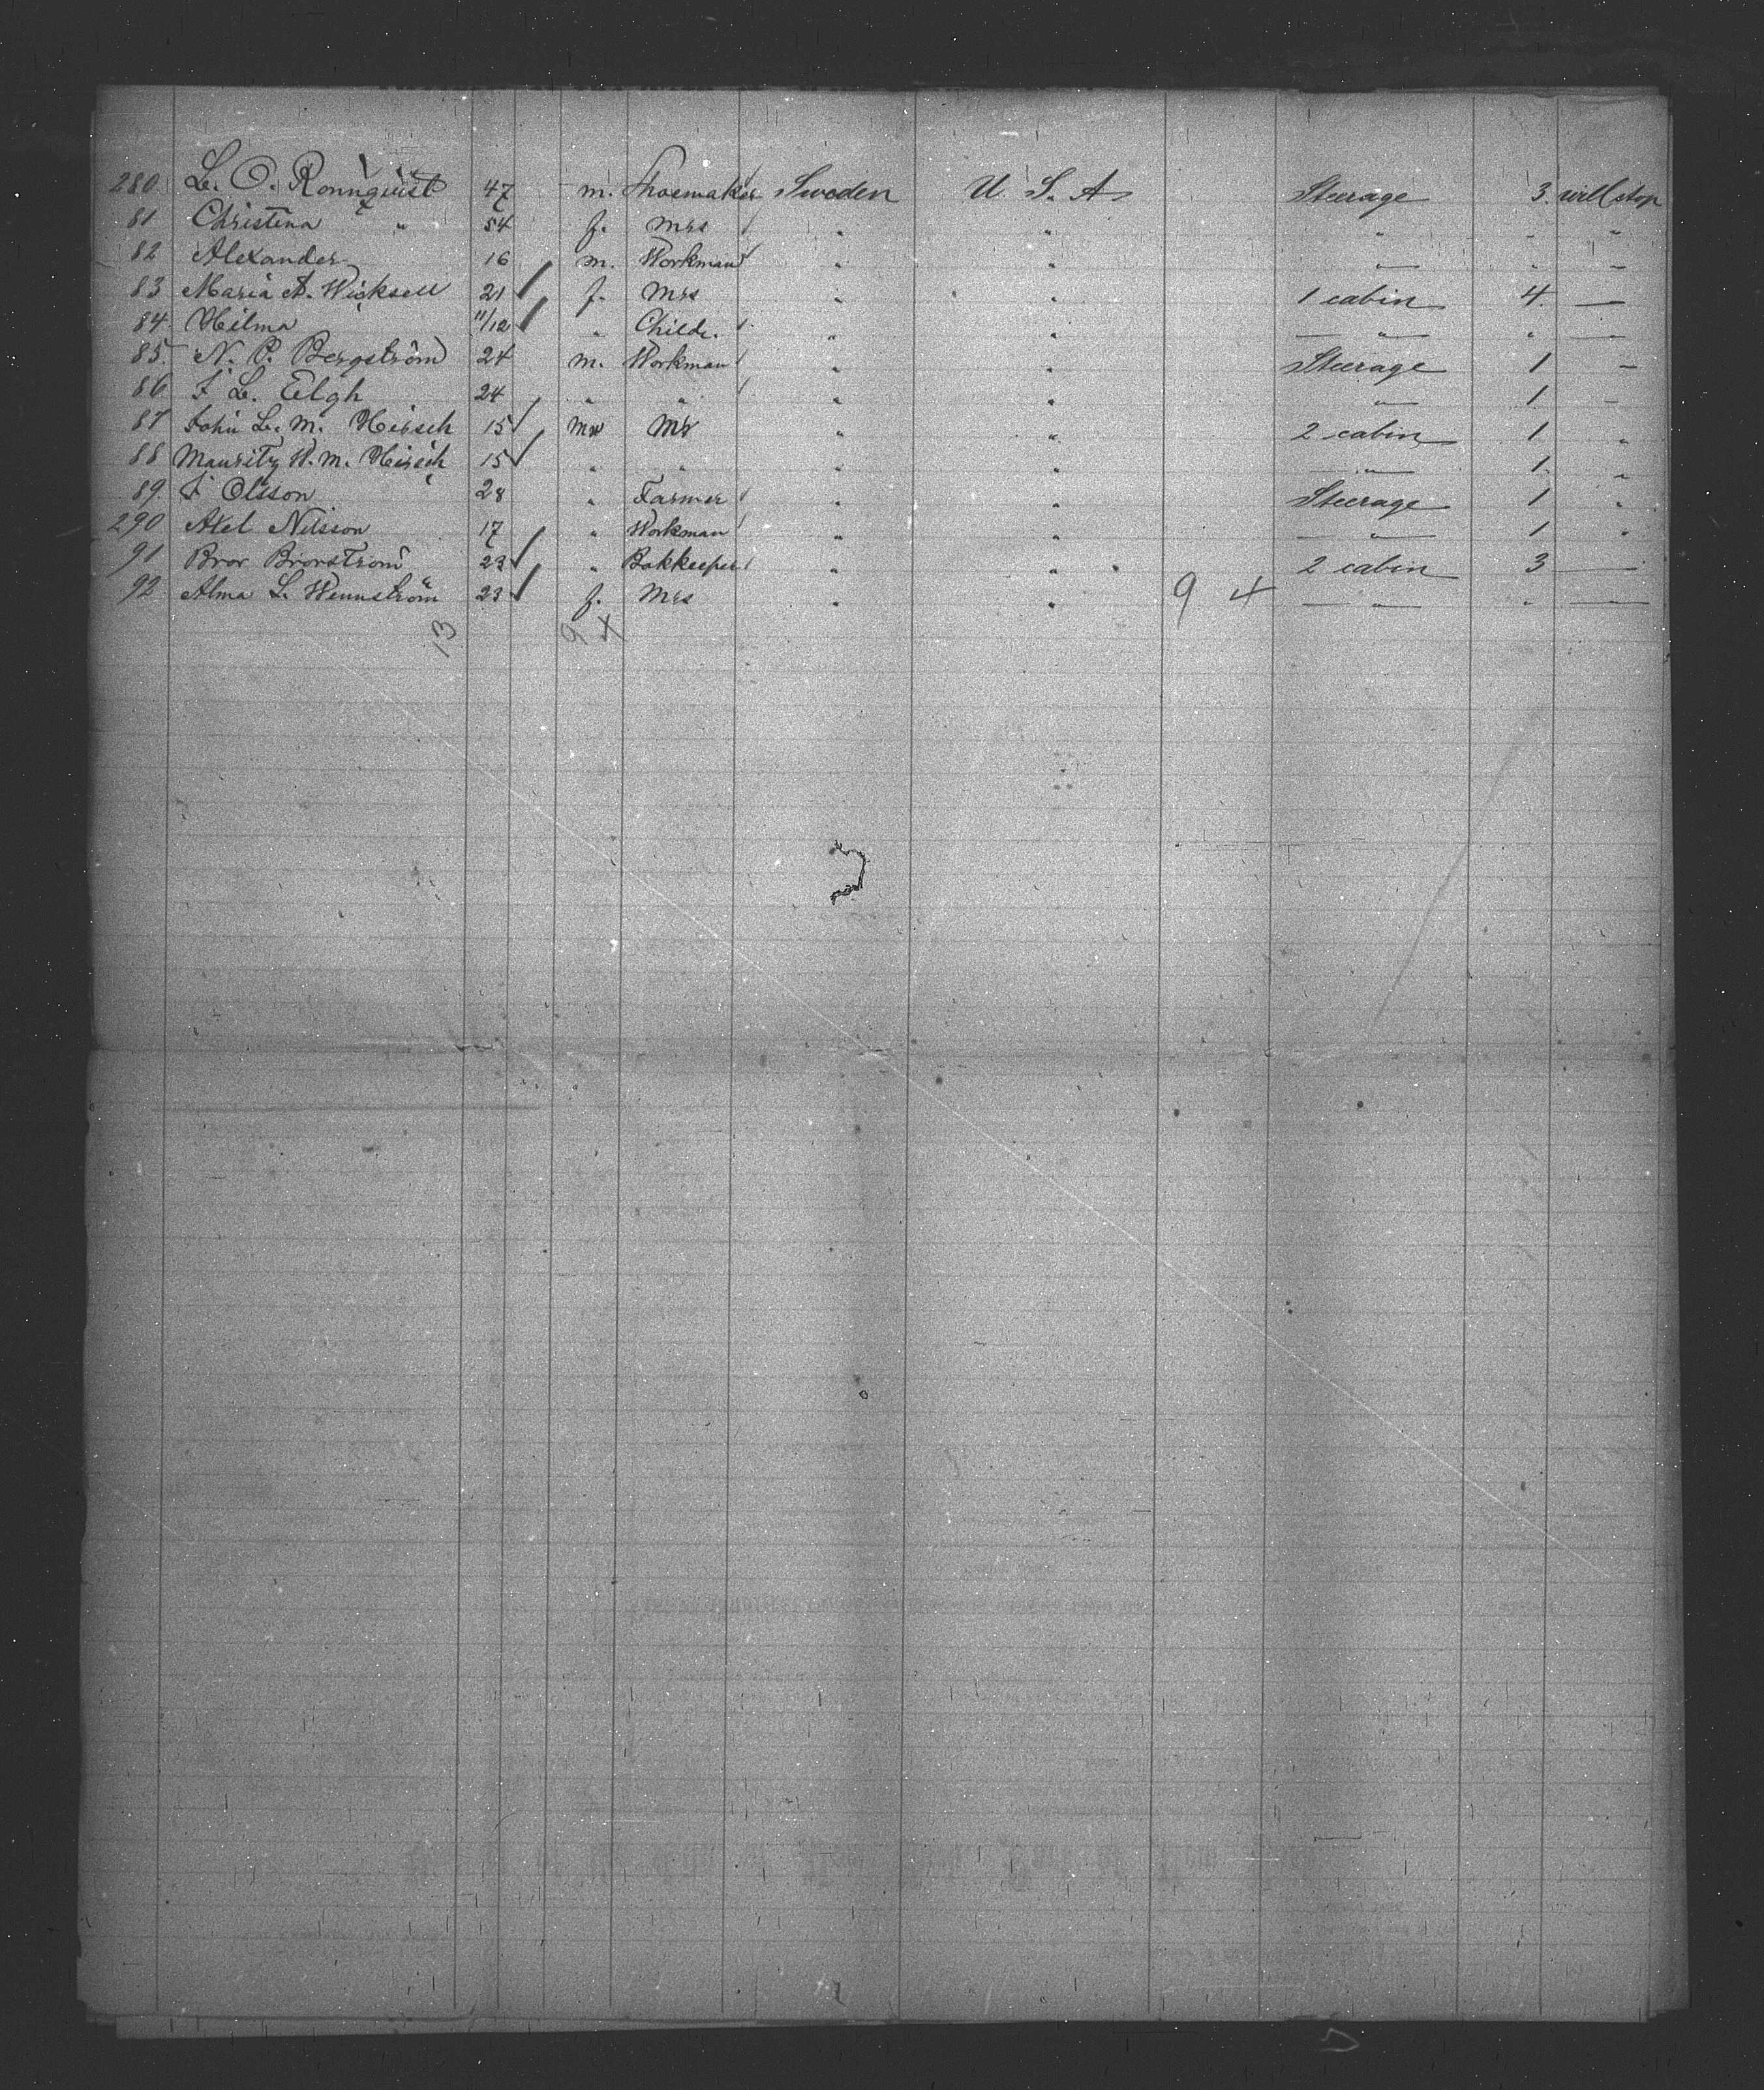 280 L. O. Ronnquist 47 m. Shoemaker Sweden U. S. A Steerage 3 will stop
81 Christina " 54 f. Mrs " " " " "
82 Alexander 16 m. Workman " " — " — " —
83 Maria A. Wicksell 21 f. Mrs " " 1 cabin 4. —
84. Hilma 11/12 " Childr. " " — " — " —
85. N. P. Bergström 24 m. Workman " " Steerage 1 —
86 F L. Elgh 24 " " " " — " — 1 —
87 John L. M. Hirsch 15 m Mr " " 2 cabin 1 "
88 Mauritz W. M. Hirsch 15 " " " " — " — 1. "
89. F Olsson 28 " Farmer " " Steerage 1 "
290 Axel Nilsson 17 " Workman " " — " — 1 "
91 Bror Brorström 23 " Bokkeeper " " 2 cabin 3 —
92 Alma L. Wennström 23 f. Mrs " " 9 4 — " — " —
13 9 4